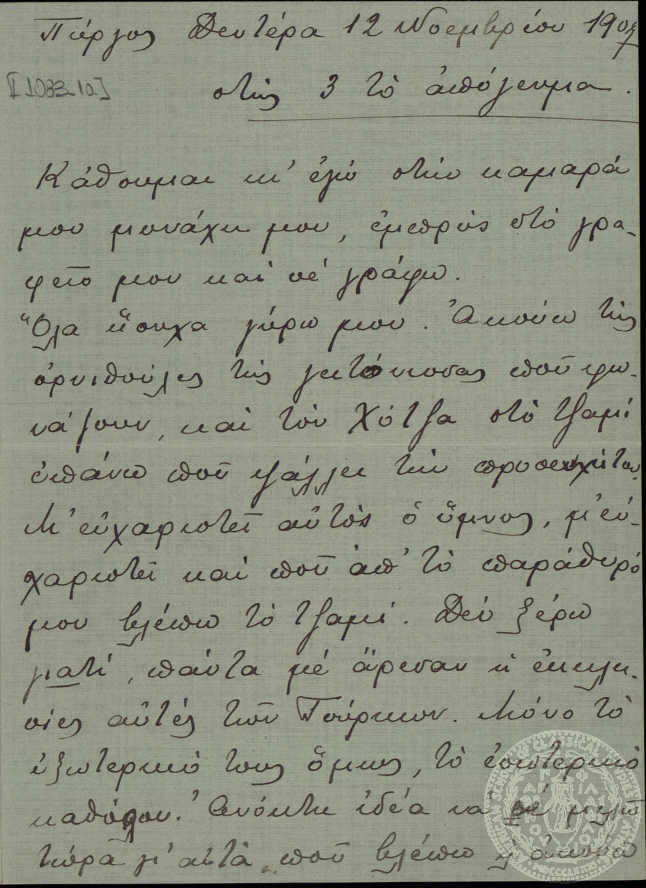 Πύργος Δευτέρα 12 Νοεμβρίου
[1083.10]
στὶς 3 τὸ ἀπόγευμα.
Κάθουμαι κ' ἐγὼ στὴν καμαρά
μου μονάχη μου, ἐμπρὸς στὸ γρα-
φεῖο μου καὶ σὲ γράφω.
Ὅλα ἥσυχα γύρω μου. Ἀκούω τὶς
ὀρνιθοῦλες τῆς γειτόνισσας ποῦ φω-
νάζουν, καὶ τὸν Χότζα στὸ τζαμί
ἐπάνω ποῦ ψάλλει τὴν προσευχή του.
Μ' εὐχαριστεῖ αὐτὸς ὁ ὕμνος, μ' εὐ-
χαριστεῖ καὶ ποῦ ἀπ' τὸ παράθυρό
μου βλέπω τὸ τζαμί. Δὲν ξέρω
γιατί, πάντα μὲ ἄρεσαν ἡ ἐκκλη-
σίες αὐτὲς τῶν Τούρκων. Μόνο τὸ
ἐξωτερικό τους ὅμως, τὸ ἐσωτερικὸ
καθόλου. Ἀνόητη ἰδέα νὰ σὲ μιλῶ
τώρα γι' αὐτά, ποῦ βλέπω ἢ ἀκούω